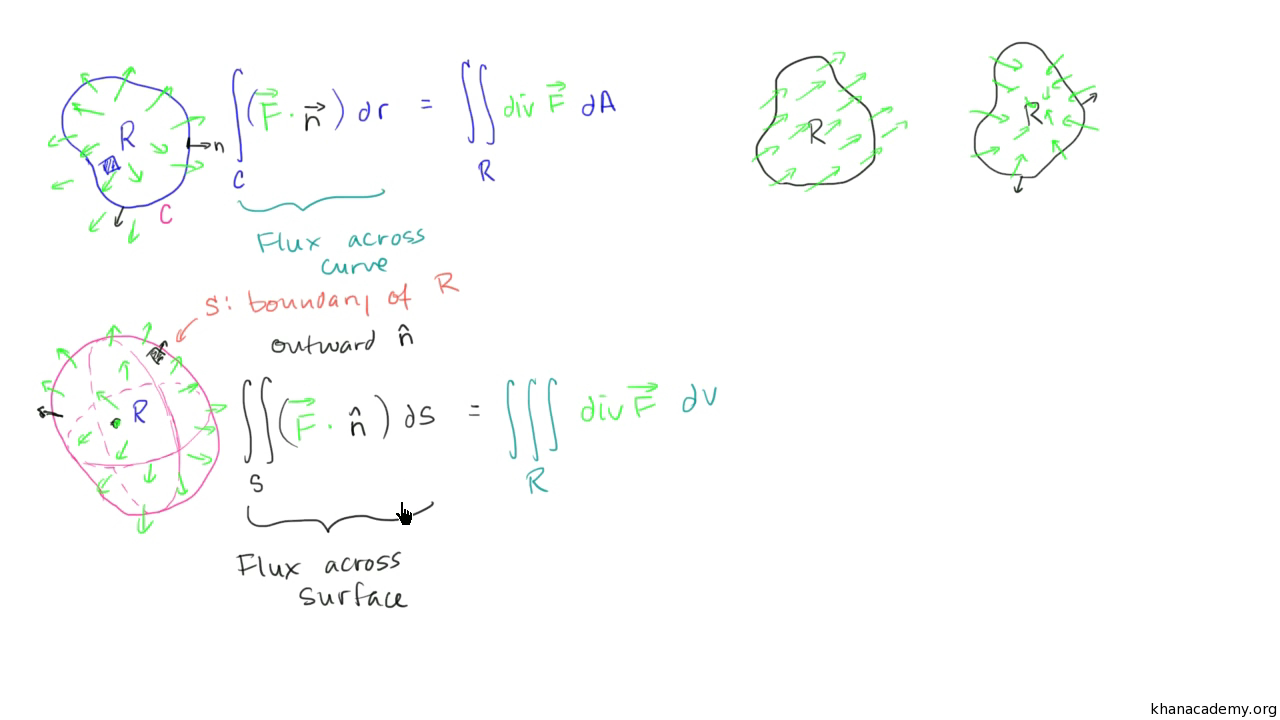 R
n
C
∫_C (F⃗ · n⃗) dr = ∬_R div F⃗ dA
Flux across
curve
S: boundary of R
outward n̂
R
∬_S (F⃗ · n̂) dS = ∭_R div F⃗ dv
Flux across
surface
R
R
khanacademy.org